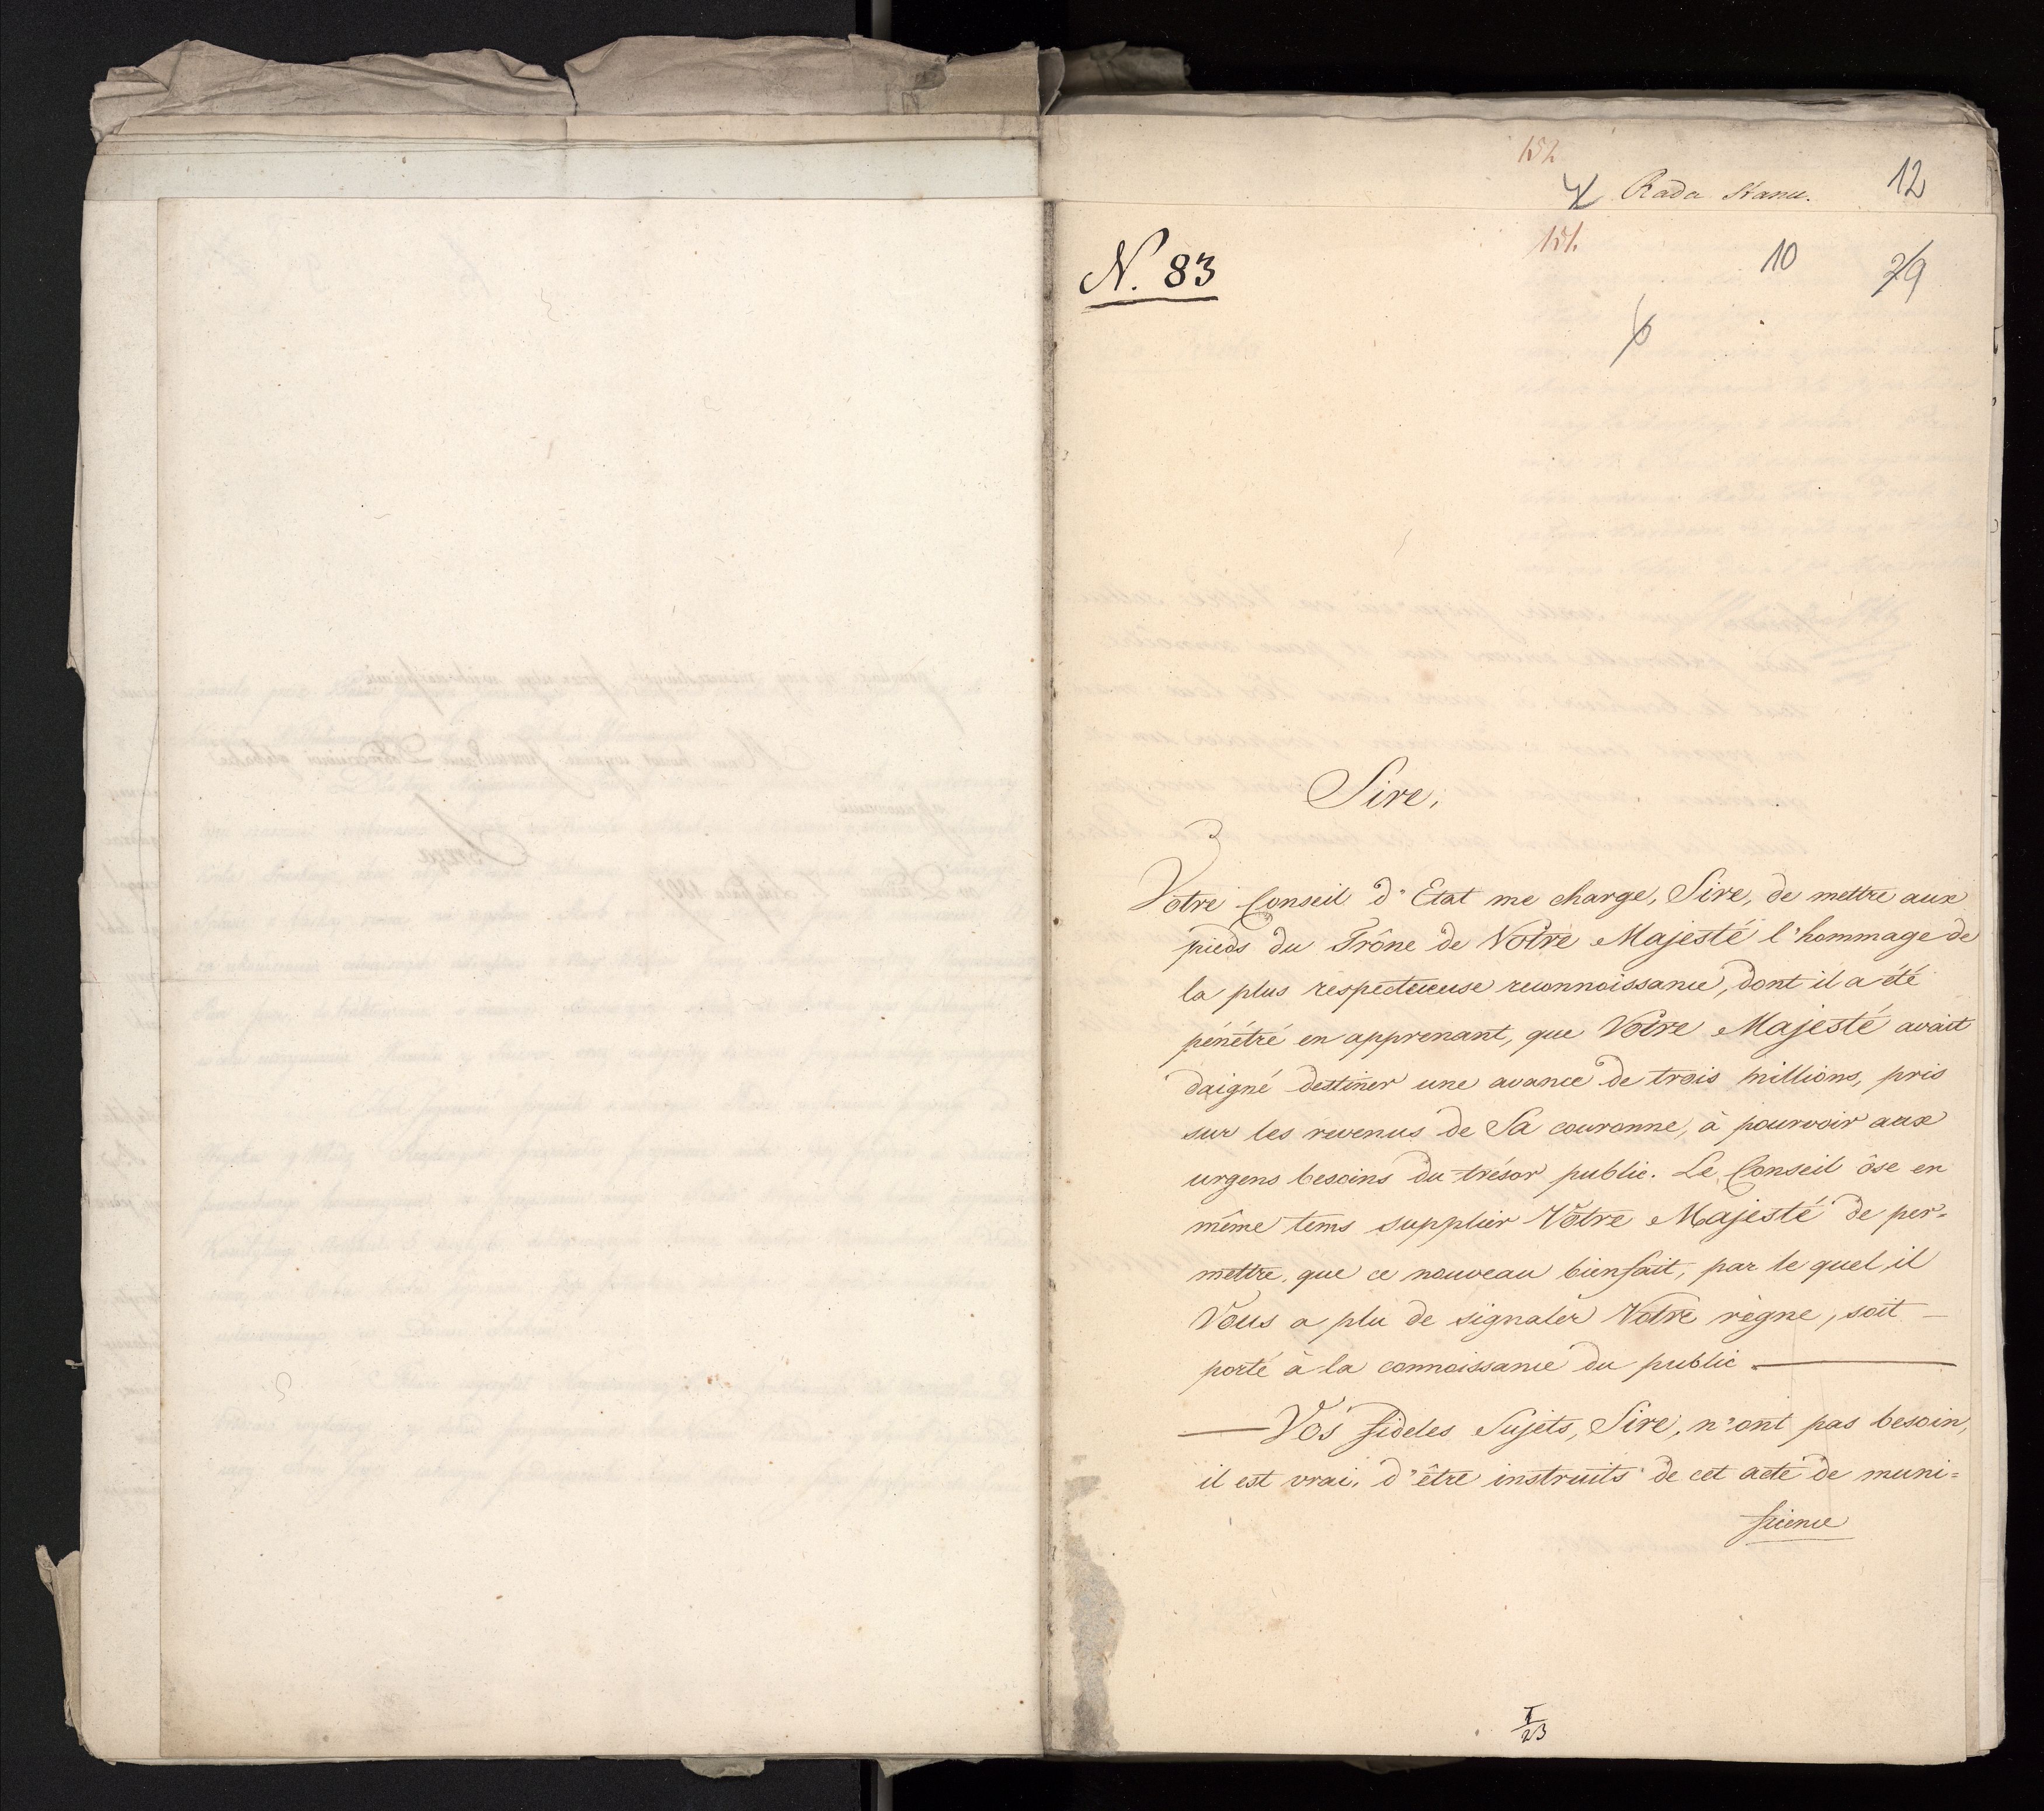 Rada Stanu.
12
10
29
N. 83
6
Sire,
Votre Conseil d'Etat me charge, Sire, de mettre aux
pieds du Trône de Votre Majesté l'hommage de
la plus respectueuse reconnoissance, dont il a été
pénétré en apprenant, que Votre Majesté avait
daigné destiner une avance de trois millions, pris
sur les revenus de Sa couronne, à pourvoir aux
urgens besoins du trésor public. Le Conseil ôse en
même tems supplier Votre Majesté de per=
mettre, que ce nouveau bienfait, par le quel il
Vous a plu de signaler Votre règne, soit
porté à la connoissance du public.
Vos fideles Sujets, Sire, n'ont pas besoin,
il est vrai, d'être instruits de cet acte de muni=
ficence
I/23